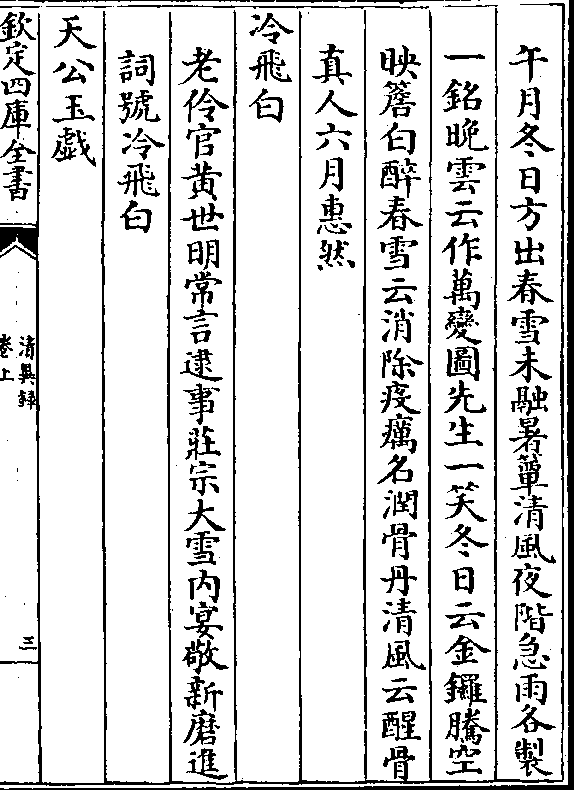 午月冬日方出春雪未融暑簟清風夜階急雨各製
一銘晚雲云作萬變圖先生一笑冬日云金鑼騰空
映簷白醉春雪云消除疫癘名潤骨丹清風云醒骨
真人六月惠然
冷飛白
老伶官黃世明常言逮事莊宗大雪内宴敬新磨進
詞號冷飛白
天公玉戲
欽定四庫全書
清異錄
卷上
三